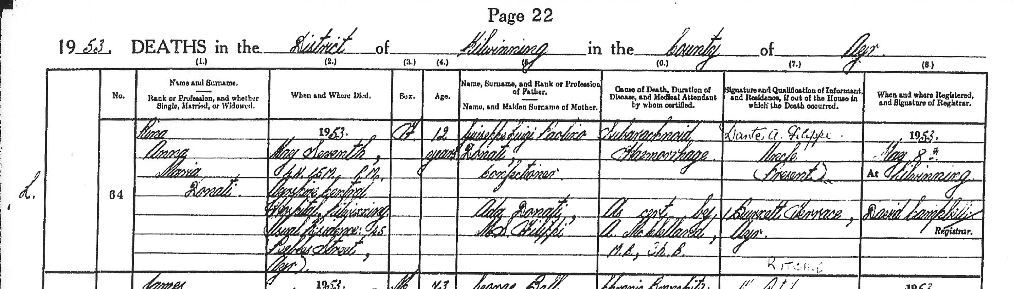 Page 22
1953. DEATHS in the District of Kilwinning in the County of Ayr.
(1.) (2.) (3.) (4.) (5.) (6.) (7.) (8.)
No.
Name and Surname.
Rank or Profession, and whether Single, Married, or Widowed.
When and Where Died.
Sex.
Age.
Name, Surname, and Rank or Profession of Father.
Name, and Maiden Surname of Mother.
Cause of Death, Duration of Disease, and Medical Attendant by whom certified.
Signature and Qualification of Informant, and Residence, if out of the House in which the Death occurred.
When and where Registered, and Signature of Registrar.
L.
64
Rina
Anna
Maria
Donati
1953.
May Seventh,
Central
Hospital, Kilwinning
Usual Residence:
Street,
Ayr).
F
12
years
Giuseppe Luigi
Donati,
Confectioner.
Ada Donati,
M.S. Filippi
Subarachnoid
Haemorrhage
As cert by
A.
M.B., Ch.B.
Dante A. Filippi.
Uncle
(Present).
Terrace,
Ayr.
1953.
May 8th
At Kilwinning
David Campbell
Registrar.
James
1953
M
73
George
1953